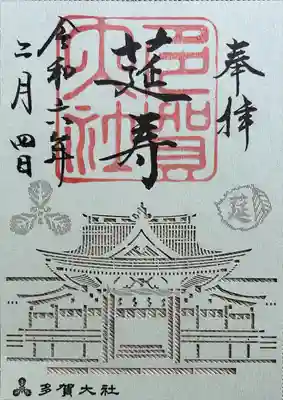 奉拝
延寿
多賀大社
令和六年
二月四日
延
多賀大社